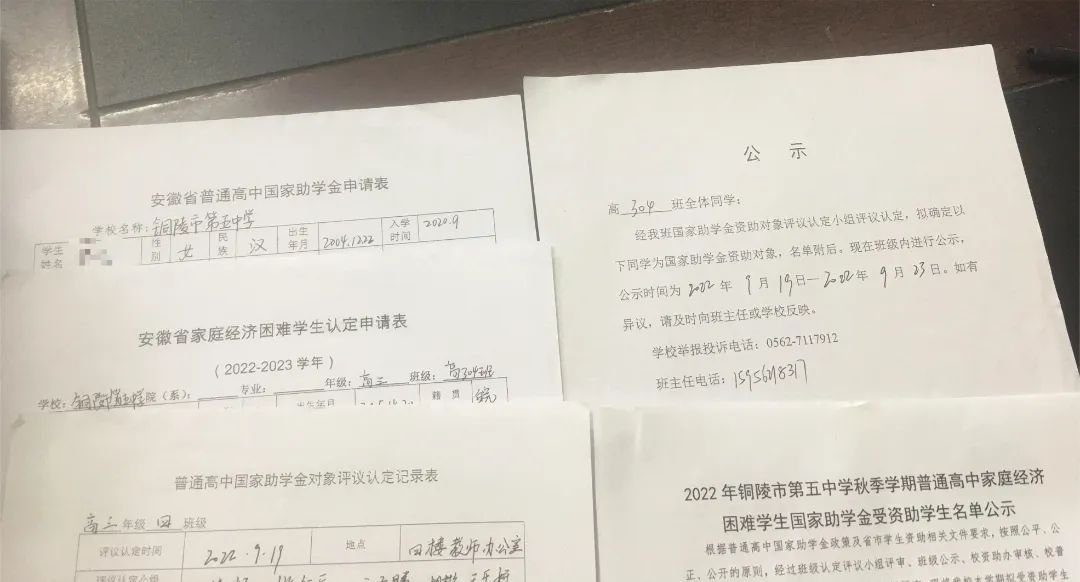 安徽省普通高中国家助学金申请表
学校名称：铜陵市第五中学
学生姓名 性别 女 民族 汉 出生年月 2004.12.22 入学时间 2020.9
安徽省家庭经济困难学生认定申请表
（2022-2023 学年）
学校：铜陵市第五中学 院（系）： 专业： 年级：高三 班级：高304班
出生年月 籍贯 皖
普通高中国家助学金对象评议认定记录表
高三年级 四 班级
评议认定时间 2022.9.19 地点 四楼教师办公室
评议认定小组
公 示
高 304 班全体同学：
经我班国家助学金资助对象评议认定小组评议认定，拟确定以
下同学为国家助学金资助对象，名单附后。现在班级内进行公示，
公示时间为 2022 年 9 月 19日—2022 年 9 月 23 日。如有
异议，请及时向班主任或学校反映。
学校举报投诉电话：0562-7117912
班主任电话：
2022 年铜陵市第五中学秋季学期普通高中家庭经济
困难学生国家助学金受资助学生名单公示
根据普通高中国家助学金政策及省市学生资助相关文件要求，按照公平、公
正、公开的原则，经过班级认定评议小组评审、班级公示、校资助办审核、校普